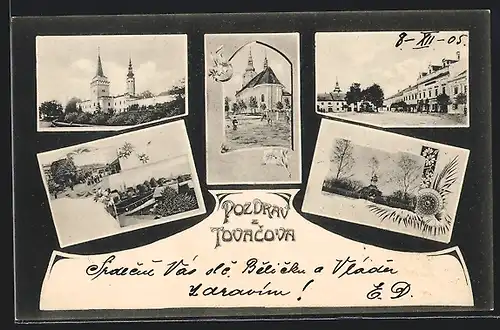 8-XII-05.
POZDRAV
z
TOVAČOVA
Srdečně Vás slč. Běličku a Vláďu
zdravím!
E.D.